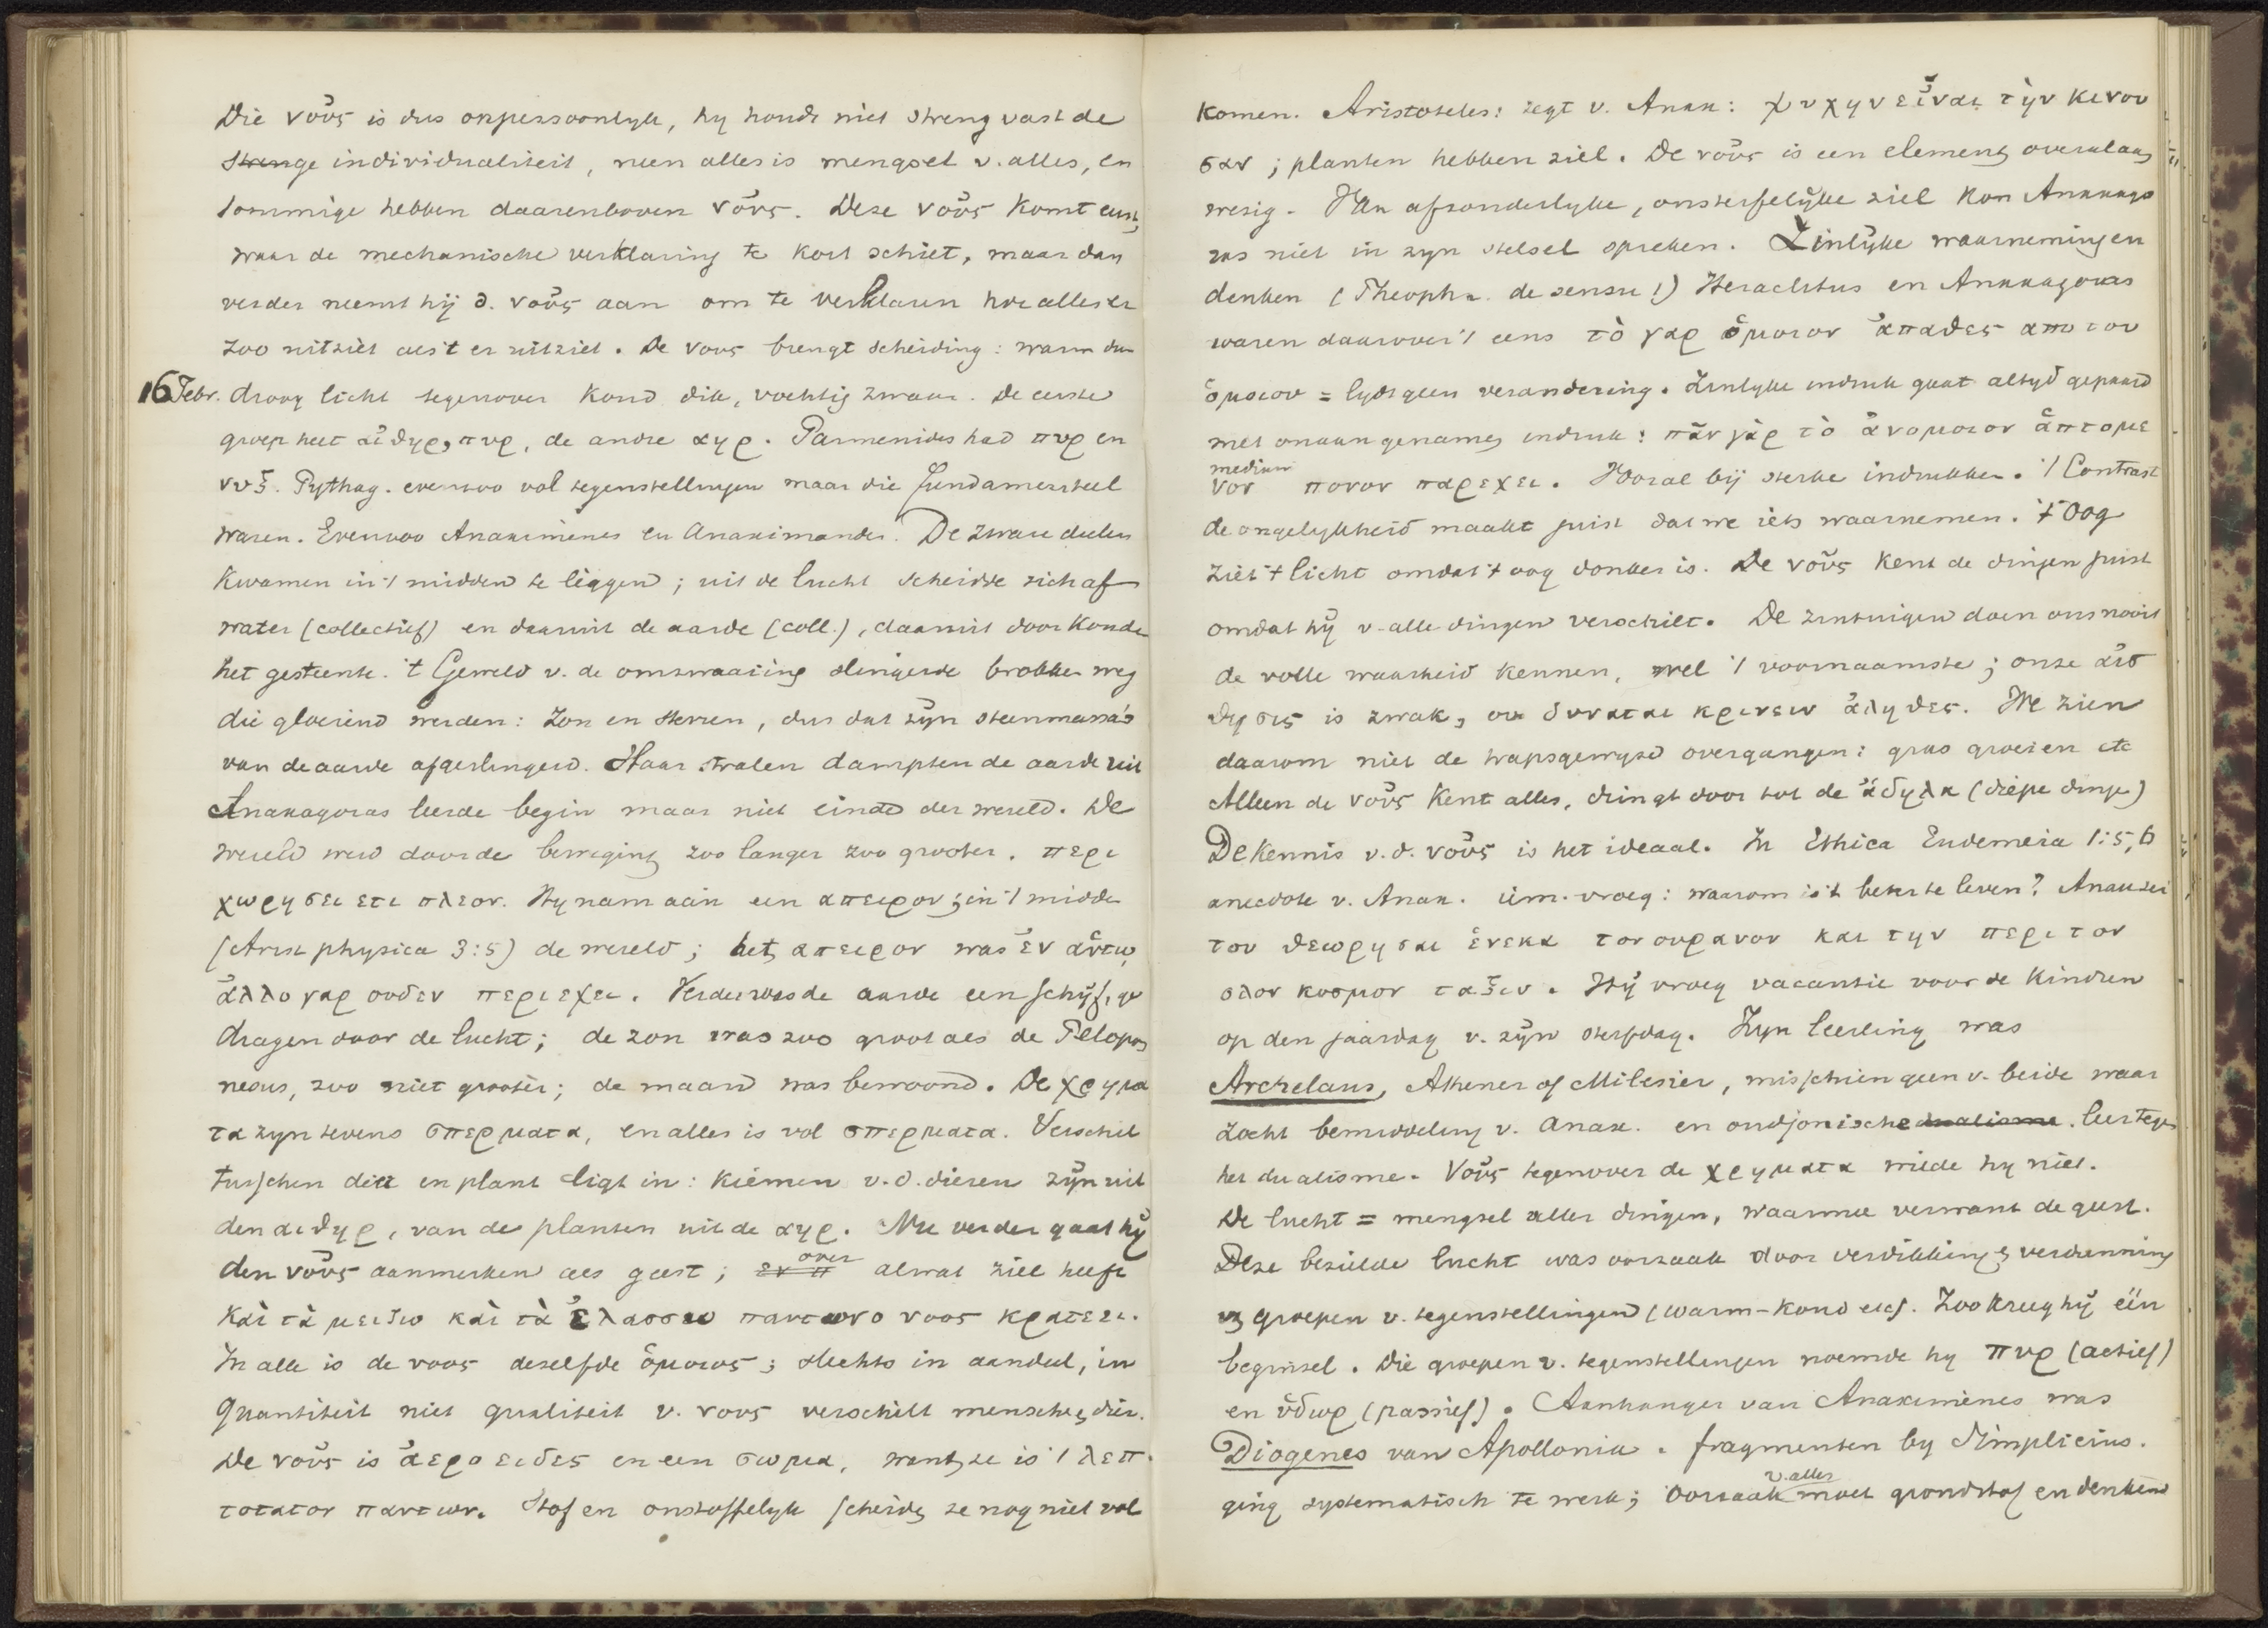 Die νοῦς is dus onpersoonlyk, hy houdt niet streng vast de
strenge individualiteit, neen alles is mengsel v. alles, en
sommige hebben daarenboven νοῦς. Deze νοῦς komt eerst,
waar de mechanische verklaring te kort schiet, maar dan
verder neemt hij d. νοῦς aan om te verklaren hoe alles er
zoo uitziet als 't er uitziet. De νους brengt scheiding: warm dun
16 Febr. droog licht tegenover koud dik, vochtig zwaar. De eerste
groep heet αἰθηρ, πυρ, de andre αηρ. Parmenides had πυρ en
νυξ. Pythag. evenzoo vol tegenstellingen maar die fundamenteel
waren. Evenzoo Anaximenes en Anaximander. De zware deelen
kwamen in 't midden te liggen; uit de lucht scheidde zich af
water (collectief) en daaruit de aarde (coll.), daaruit door koude
het gesteente. 't Geweld v. de omzwaaiing slingerde brokken weg
die gloeiend werden: Zon en sterren, dus dat zijn steenmassa's
van de aarde afgeslingerd. Haar stralen dampten de aarde uit
Anaxagoras leerde begin maar niet einde der wereld. De
wereld werd door de beweging zoo langer zoo grooter. περι
χωρησει ετι πλεον. Hy nam aan een απειρον; in 't midden
(Arist physica 3:5) de wereld; het απειρον was ἐν αὑτω,
ἀλλο γαρ ουδεν περιεχει. Verder was de aarde een schijf, ge
dragen door de lucht; de zon was zoo groot als de Pelopon
nesus, zoo niet grooter; de maand was bewoond. De χρημα
τα zyn tevens σπερματα, en alles is vol σπερματα. Verschil
tusschen dier en plant ligt in: kiemen v. d. dieren zijn uit
den αιθηρ, van de planten uit de αηρ. Nu verder gaat hij
den νοῦς aanmerken als geest; εν π over alwat ziel heeft
και τὰ μειζω και τὰ ἐλασσω παντων ο νοος κρατεει.
In alle is de νοος dezelfde ὁμοιος; slechts in aandeel, in
quantiteit niet qualiteit v. νους verschilt mensch en dier.
De νοῦς is ἀεροειδες en een σωμα, want ze is 't λεπ
τοτατον παντων. Stof en onstoffelyk scheidt ze nog niet vol
komen. Aristoteles: zegt v. Anax: ψυχην εἶναι τὴν κινου
σαν; planten hebben ziel. De νοῦς is een element overal aan
wezig. Van afzonderlyke, onsterfelijke ziel kon Anaxago
ras niet in zyn stelsel spreken. Zinlijke waarnemingen
denken (Theophr. de sensu 1) Heraclitus en Anaxagoras
waren daarover 't eens τὸ γαρ ὁμοιον ἀπαθες απο του
ὁμοιου = lydt geen verandering. Zinlyke indruk gaat altyd gepaard
met onaangenamen indruk: πᾶν γὰρ τὸ ἀνομοιον ἁπτομε
medium
νον πονον παρεχει. Vooral bij sterke indrukken. 't Contrast
de ongelykheid maakt juist dat we iets waarnemen. 't Oog
ziet 't licht omdat 't oog donker is. De νοῦς kent de dingen juist
omdat hij v. alle dingen verschilt. De zintuigen doen ons nooit
de volle waarheid kennen, wel 't voornaamste; onze ἀισ
θησις is zwak, ου δυναται κρινειν ἀληθες. We zien
daarom niet de trapsgewyze overgangen: gras groeien etc
Alleen de νοῦς kent alles, dringt door tot de ἀδηλα (diepe dingen)
De kennis v. d. νοῦς is het ideaal. In Ethica Eudemeia 1:5,6
anecdote v. Anax. iem. vroeg: waarom is 't beter te leven? Anax zei
του θεωρησαι ἑνεκα τον ουρανον και την περι τον
ολον κοσμον ταξιν. Hij vroeg vacantie voor de kindren
op den jaardag v. zijn sterfdag. Zyn leerling was
Archelaus, Athener of Milesier, misschien geen v. beide maar
zocht bemiddeling v. Anax. en oudjonische dualisme. leer tegen
het dualisme. Νοῦς tegenover de χρηματα wilde hy niet.
De lucht = mengsel aller dingen, waarmee verwant de geest.
Deze bezielde lucht was oorzaak door verdikking en verdunning
v. groepen v. tegenstellingen (warm-koud etc). Zoo kreeg hij één
beginsel. Die groepen v. tegenstellingen noemde hy πυρ (actief)
en ὑδωρ (passief). Aanhanger van Anaximenes was
Diogenes van Apollonia. fragmenten by Simplicius.
ging systematisch te werk; oorzaak v. alles moet grondstof en denkend